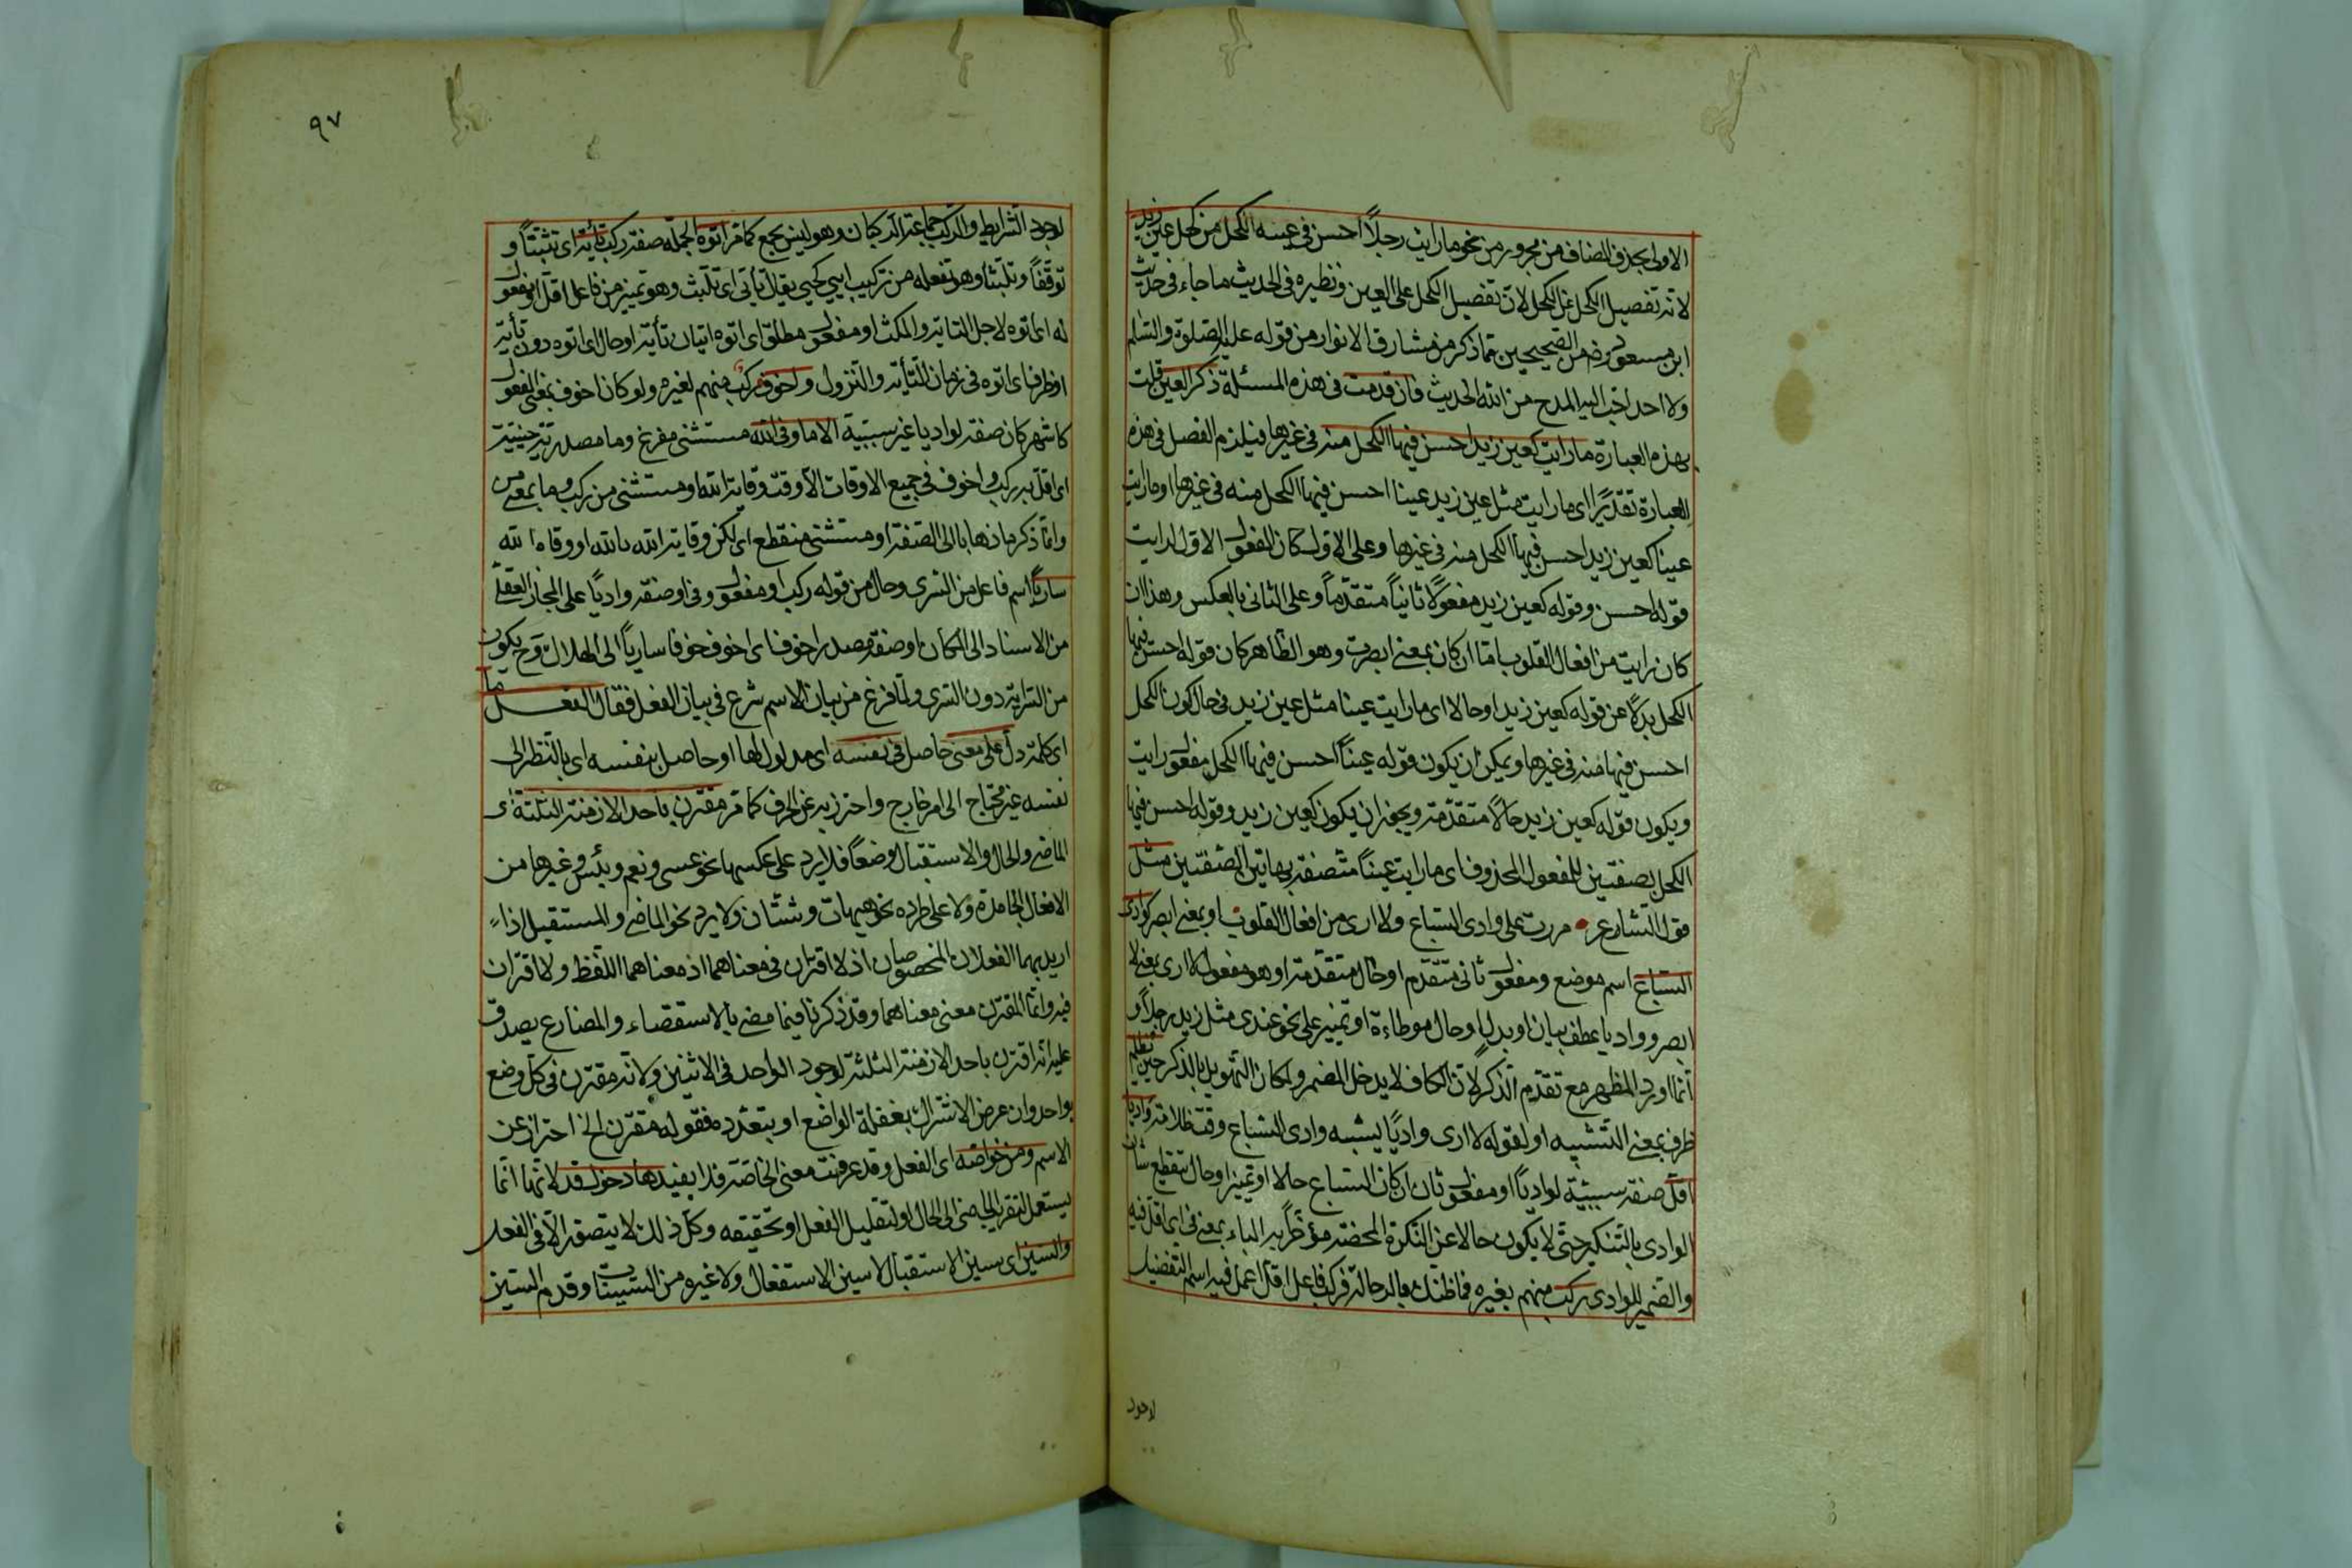 الاولى بحذف المضاف من مجرور من نحو ما رايت رجلاً احسن في عينه الكحل من كحل عين زيد
لانه تفضيل الكحل عن الكحل لان تفضيل الكحل على العين ونظيره في الحديث ما جاء في حديث
ابن مسعود رضه من الصحيحين مما ذكر من مشارق الانوار من قوله عليه الصلوة والسلم
ولا احد احب اليه المدح من الله الحديث فان قدمت في هذه المسئلة ذكر العين قلت
بهذه العبارة ما رايت كعين زيد احسن فيها الكحل منه في غيرها فيلزم الفصل في هذه
العبارة تقديرًا اى ما رايت مثل عين زيد عينا احسن فيها الكحل منه في غيرها او ما رايت
عينا كعين زيد احسن فيها الكحل منه في غيرها وعلى الاول كان المفعول الاول لرايت
قوله احسن وقوله كعين زيد مفعولاً ثانياً متقدماً وعلى الثانى بالعكس وهذا ان
كان رايت من افعال القلوب اما ان كان بمعنى ابصرت وهو الظاهر كان قوله احسن فيها
الكحل بدلاً عن قوله كعين زيد او حالا اى ما رايت عينا مثل عين زيد في حال كون الكحل
احسن فيها منه في غيرها ويمكن ان يكون قوله عيناً احسن فيها الكحل مفعول رايت
ويكون قوله كعين زيد حالاً متقدمة ويجوز ان يكون كعين زيد وقوله احسن فيها
الكحل بصفتين للمفعول المحذوف اى ما رايت عيناً متصفة بهاتين الصفتين مثل
قول الشارع مررت على وادى السباع ولا ارى من افعال القلوب او بمعنى ابصر كوادى
السباع اسم موضع ومفعول ثانى متقدم او حال متقدمة او هو مفعول لا ارى بمعنى لا
ابصر وواديا عطف بيان او بدل او حال موطاءة او تمييز على نحو عندى مثل زيد رجلاً و
انما اورد المظهر مع تقدم الذكر لان الكاف لا يدخل المضمر ولمكان التهويل بالذكر حين يظلم
ظرف بمعنى التشبيه او لقوله لا ارى وادياً يشبه وادى السباع وقت ظلامه واديا
اقل صفة سببية لوادياً او مفعول ثان ان كان السباع حالا او تمييز او حال بتقطيع شان
الوادى بالتنكير حتى لا يكون حالا عن النكرة المحضة مؤخراً به الباء بمعنى في اى اقل فيه
والضمير للوادى ركب منهم بغيره فما ظنك بالرحالة فركب فاعل اقل اعمل فيه اسم التفضيل
لوجود
٩٧
لوجود الشرايط والركب جماعة الركبان وهو ليس بجمع كما مر اتوه الجملة صفة ركب تأية اى تثبتاً و
توقفاً وتلبثا وهو تفعلة من تركيب ايي كحيي يقال تأيى اى تلبث وهو تمييز من فاعل اقل او مفعول
له اى اتوه لاجل التاية والمكث او مفعول مطلق اى اتوه اتيان تأية او حال اى اتوه دون تأية
او ظرف اى اتوه في زمان للتأية والنزول واخوف ركب منهم لغيره ولو كان اخوف بمعنى المفعول
كاشهر كان صفة لواديا غير سببية الا ما وقى الله مستثنى مفرغ وما مصدرية حينية
اى اقل به ركب واخوف في جميع الاوقات الا وقت وقاية الله او مستثنى من ركب وما بمعنى من
وانما ذكر ما ذهابا الى الصفة او مستثنى منقطع اى لكن وقاية الله بالله او وقاه الله
سارياً اسم فاعل من السرى وحال من قوله ركب او مفعول وقى او صفة وادياً على المجاز العقلى
من الاسناد الى المكان او صفة مصدر اخوف اى اخوف خوفا سارياً الى الهلال وح يكون
من السراية دون السرى ولما فرغ من بيان الاسم شرع في بيان الفعل فقال الفعل ما
اى كلمة دل على معنى حاصل في نفسه اى مدلول لها او حاصل بنفسه اى بالنظر الى
نفسه غير محتاج الى امر خارج واحترز به عن الحرف كما مر مقترن باحد الازمنة الثلثة اى
الماضى والحال والاستقبال وضعاً فلا يرد على عكسها نحو عسى ونعم وبئس وغيرها من
الافعال الجامدة ولا على طرده نحو هيهات وشتان ولا يرد نحو الماضى والمستقبل اذا
اريد بهما الفعلان المخصوصان اذ لا اقتران في معناهما اذ معناهما اللفظ ولا اقتران
فيه وانما المقترن معنى معناهما وقد ذكرنا فيما مضى بالاستقصاء والمضارع يصدق
عليه انه اقترن باحد الازمنة الثلثة لوجود الواحد في الاثنين ولانه مقترن في كل وضع
بواحد وان عرض الاشتراك بغفلة الواضع او بتعدده فقوله مقترن الخ احتراز عن
الاسم ومن خواصه اى الفعل وقد عرفت معنى الخاصة فلا يفيدها دخول قد لانها انما
يستعمل لتقريب الماضى الى الحال او لتقليل الفعل او تحقيقه وكل ذلك لا يتصور الا في الفعل
والسين اى سين الاستقبال لا سين الاستفعال ولا غيره من السينات وقدم السين